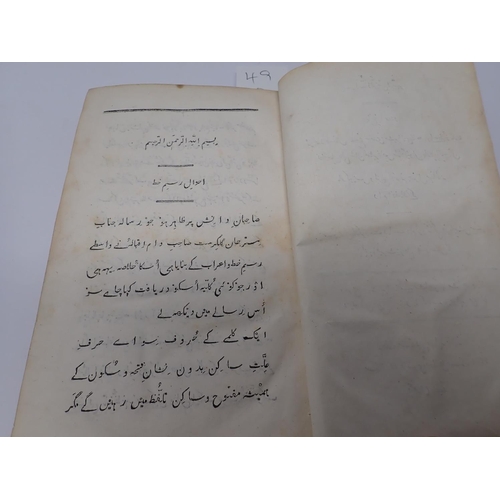 49
بسم اللہ الرحمن الرحیم
احوال رسم خط
صاحبان دانش پر ظاہر ہو جو رسالہ جناب
مسٹر جان گلکرست صاحب دام اقبالہ نے واسطے
رسم خط و اعراب کے بنایا ہی اُسکا خلاصہ یہہ ہی
اور جو کوئی کلیہ اُسکو دریافت کیا چاہے سو
اُس رسالے میں دیکھہ لے
ایک کلمے کے حروف سواے حرف
علّت ساکن بدون نشان فتحہ و سکون کے
ہمیشہ مفتوح و ساکن تلفّظ میں رہیں گے مگر